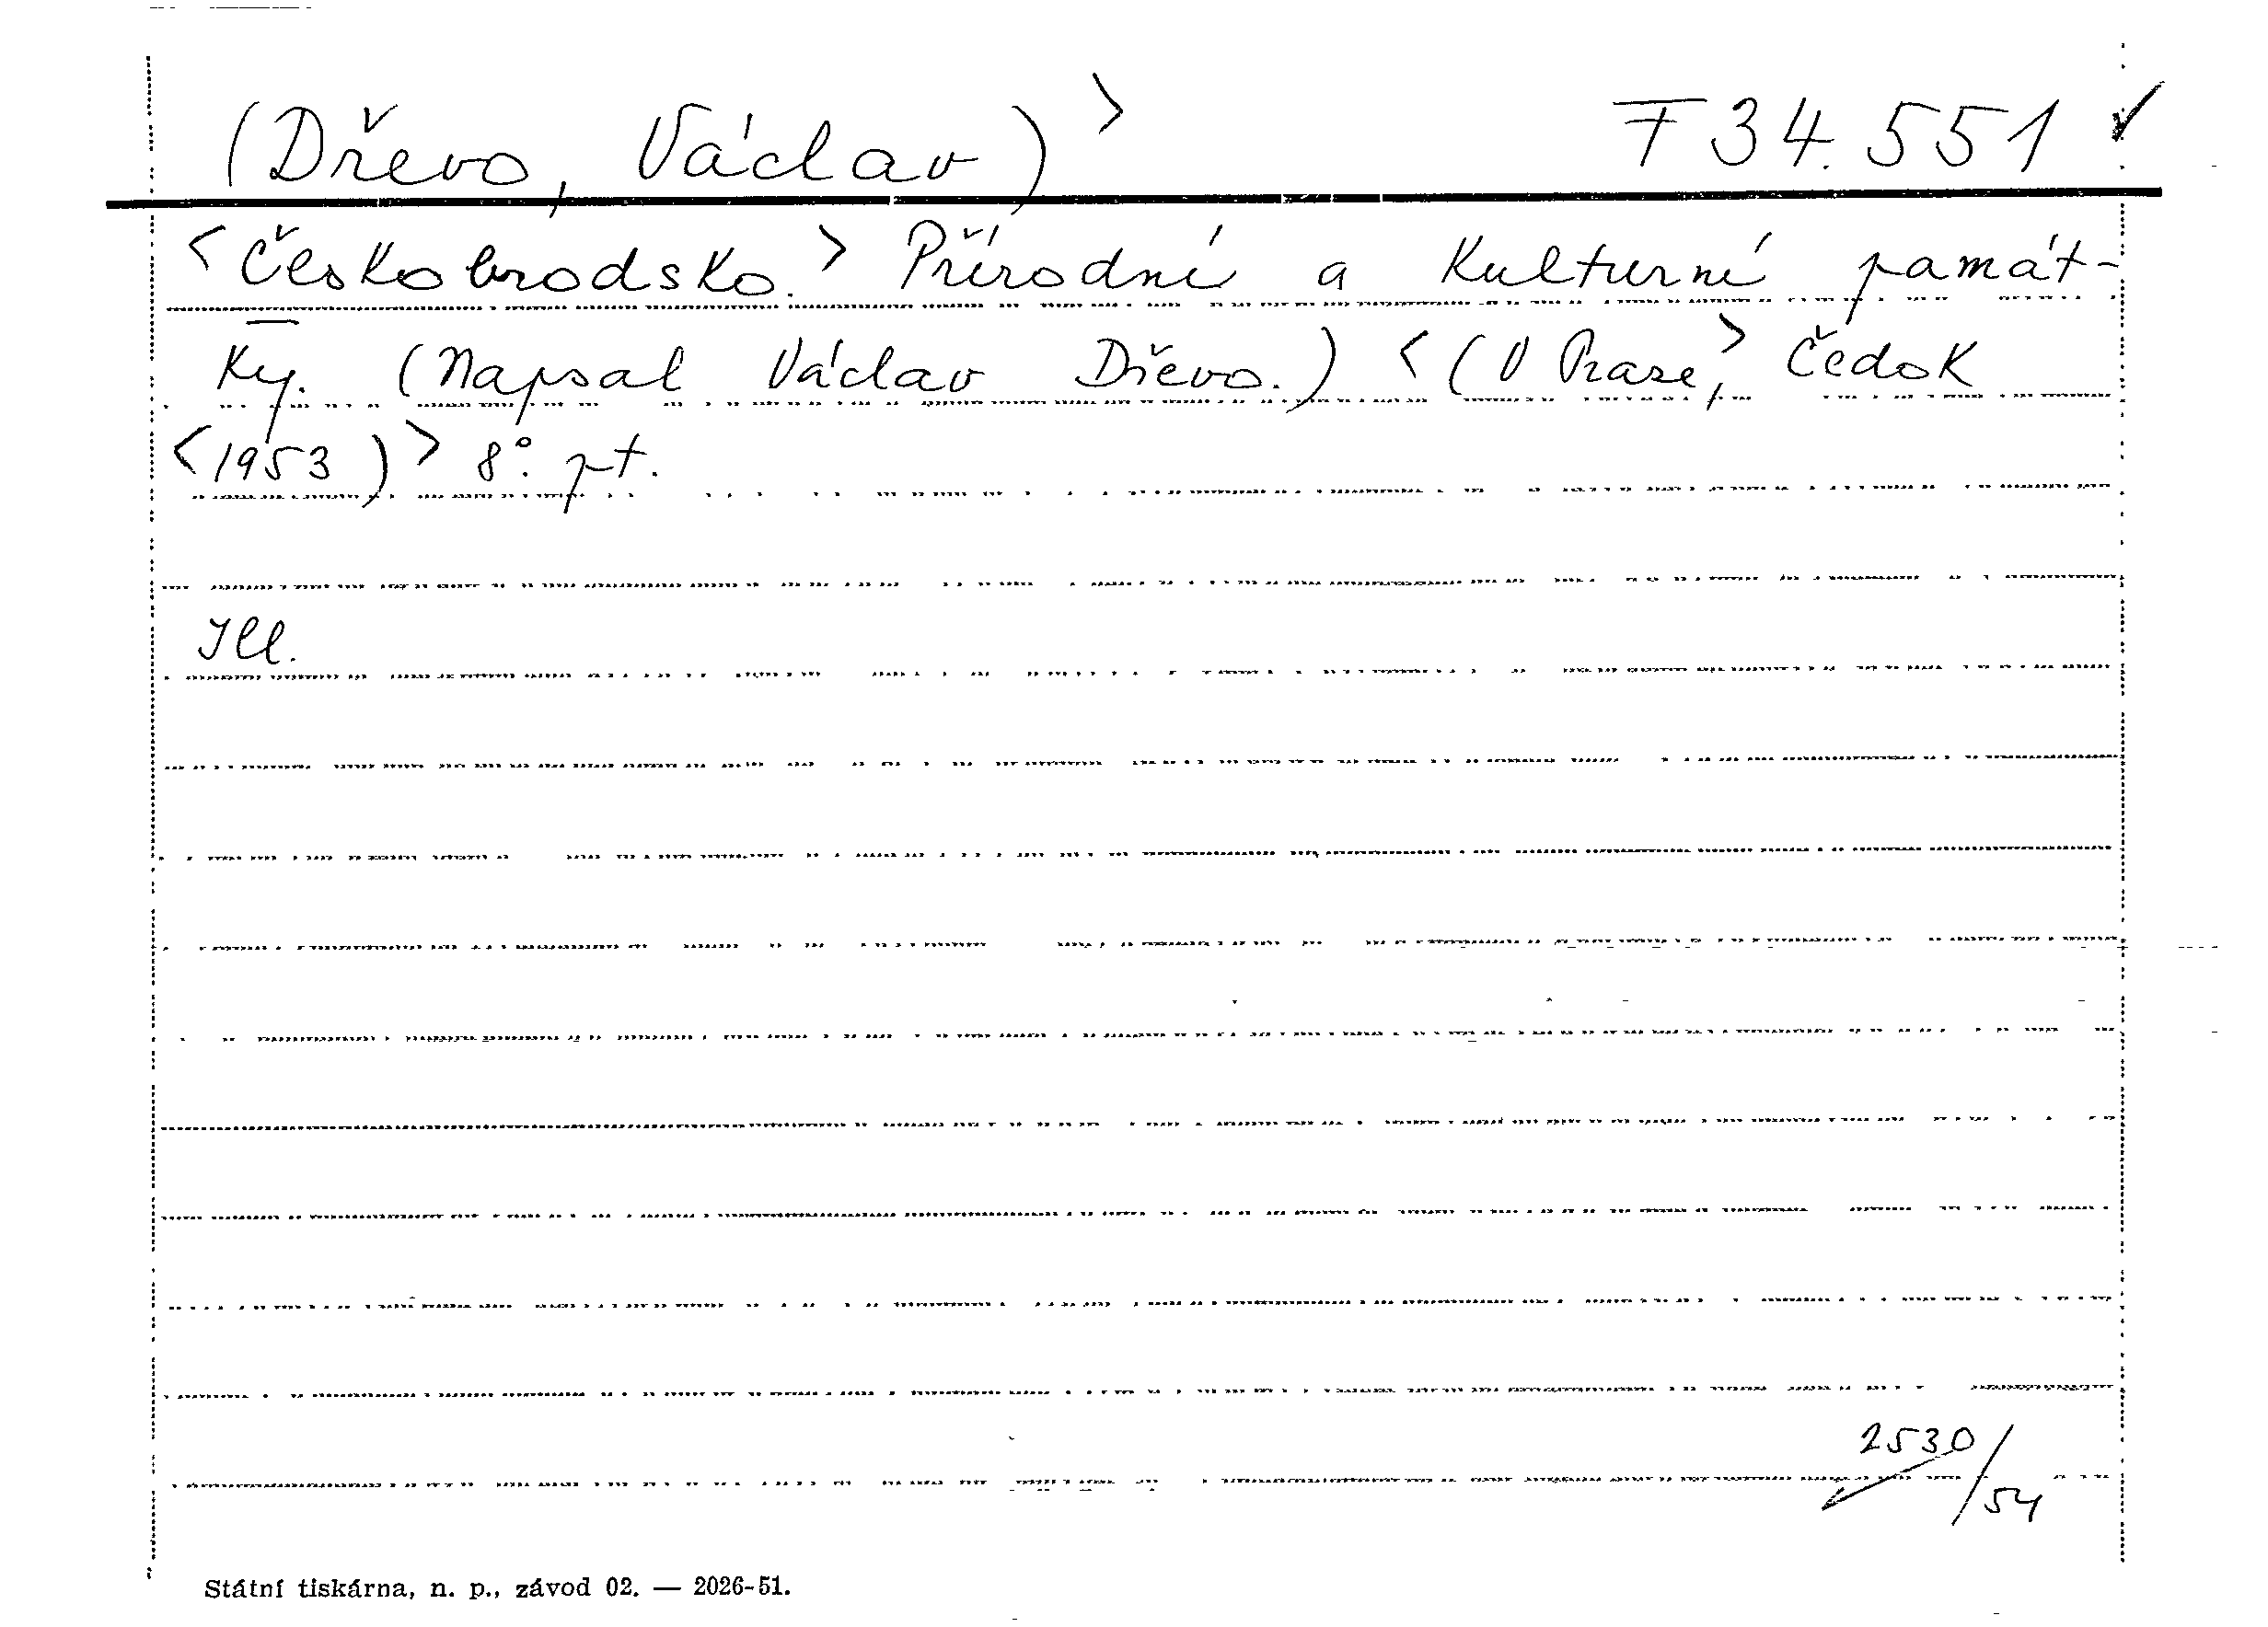 (Dřevo, Václav)> F 34.551 ✓
<Českobrodsko.> Přírodní a kulturní památ-
ky. (Napsal Václav Dřevo.) <(V Praze,> Čedok
<1953)> 8°. pt.
Ill.
2530/54
Státní tiskárna, n. p., závod 02. — 2026-51.